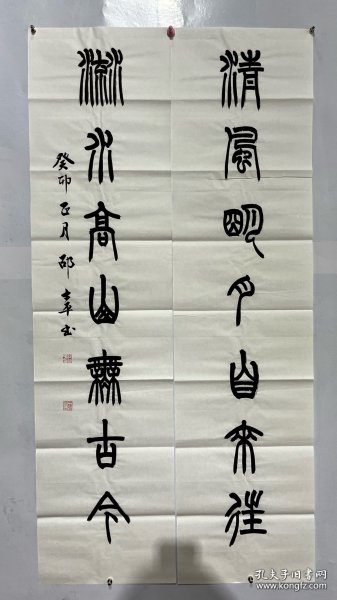 清風明月自來往
流水高山無古今
癸卯正月邵書
孔夫子旧书网
kongfz.com